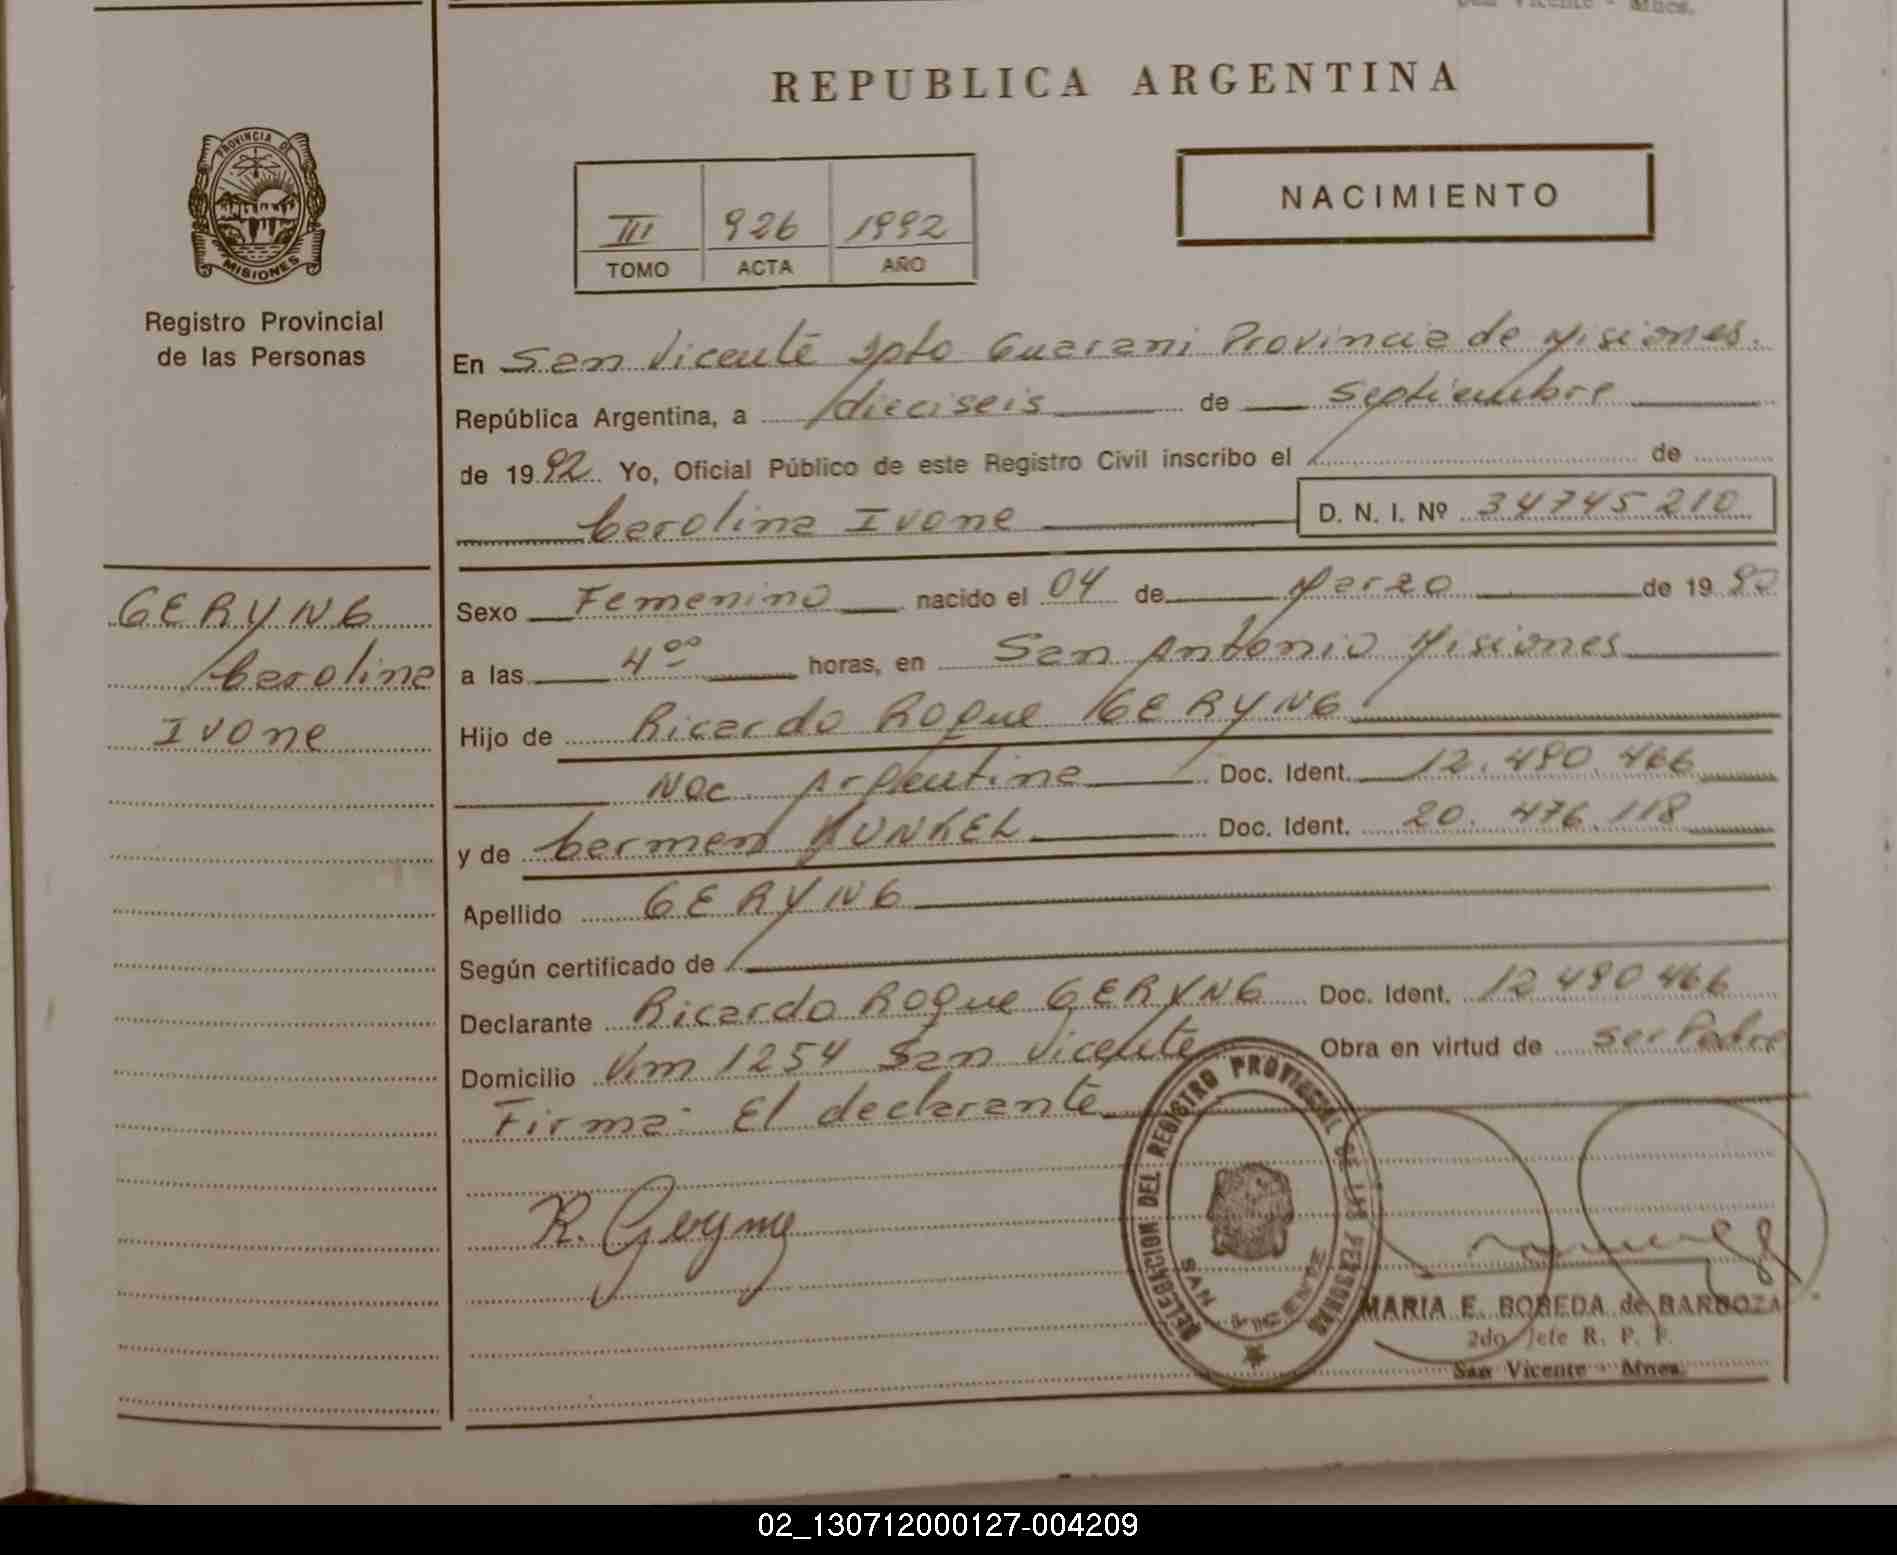 REPUBLICA ARGENTINA
PROVINCIA DE
MISIONES
Registro Provincial
de las Personas
III 926 1992
TOMO ACTA AÑO
NACIMIENTO
En San Vicente Dpto Guarani Provincia de Misiones.
República Argentina, a dieciseis de Septiembre
de 1992 Yo, Oficial Público de este Registro Civil inscribo el de
Carolina Ivone D. N. I. Nº 34745210
GERYNG
Carolina
Ivone
Sexo Femenino nacido el 04 de Marzo de 1992
a las 4⁰⁰ horas, en San Antonio Misiones
Hijo de Ricardo Roque GERYNG
Nac. Argentina Doc. Ident. 12.490.466
y de Carmen KUNKEL Doc. Ident. 20.476.118
Apellido GERYNG
Según certificado de
Declarante Ricardo Roque GERYNG Doc. Ident. 12490466
Domicilio Km 1254 San Vicente Obra en virtud de ser Padre
Firma: El declarante
R. Geryng
DELEGACION DEL REGISTRO PROVINCIAL DE LAS PERSONAS
SAN VICENTE
MARIA E. BOBEDA de BARBOZA
2do Jefe R. P. P.
San Vicente - Mnes.
02_130712000127-004209